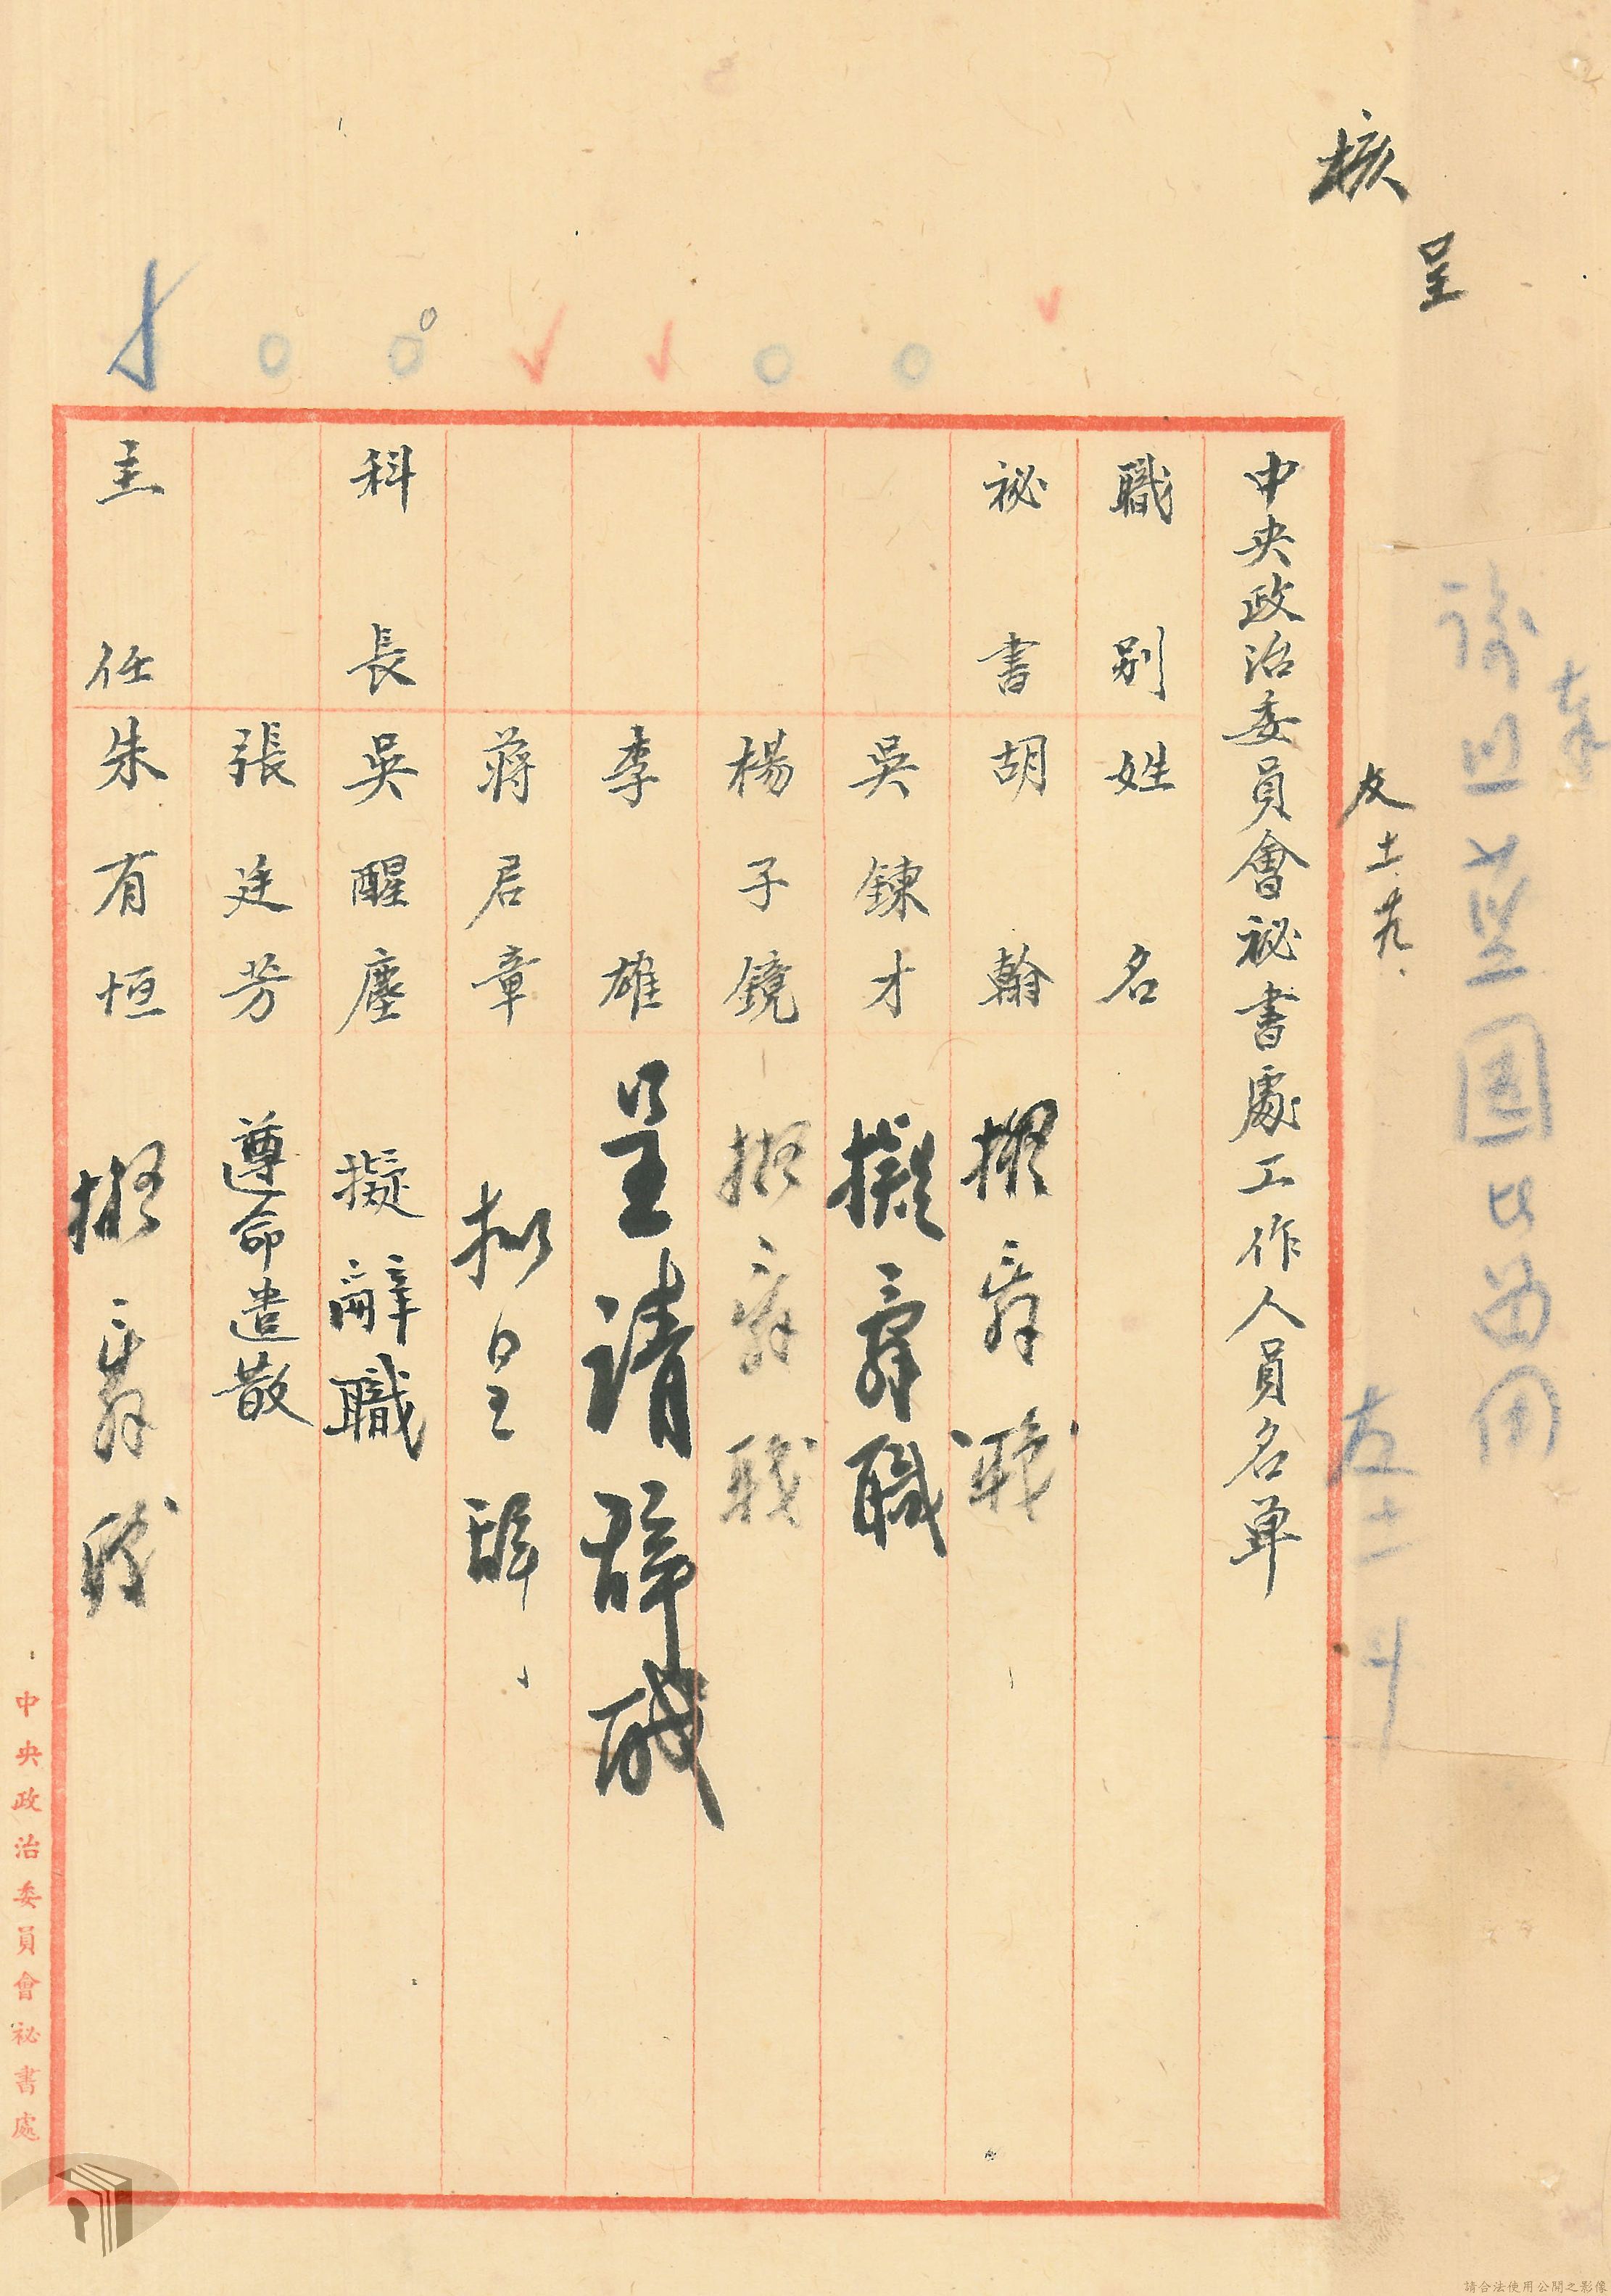 呈
核
中央政治委員會祕書處工作人員名單
職別 姓名
祕書 胡翰 擬辭職
吳鍊才 擬辭職
楊子鏡 擬辭職
李雄 呈請辭職
蔣君章 拟呈辭
科長 吳醒塵 擬辭職
張廷芳 遵命遣散
主任 朱有恒 擬辭職
中央政治委員會祕書處
請合法使用公開之影像